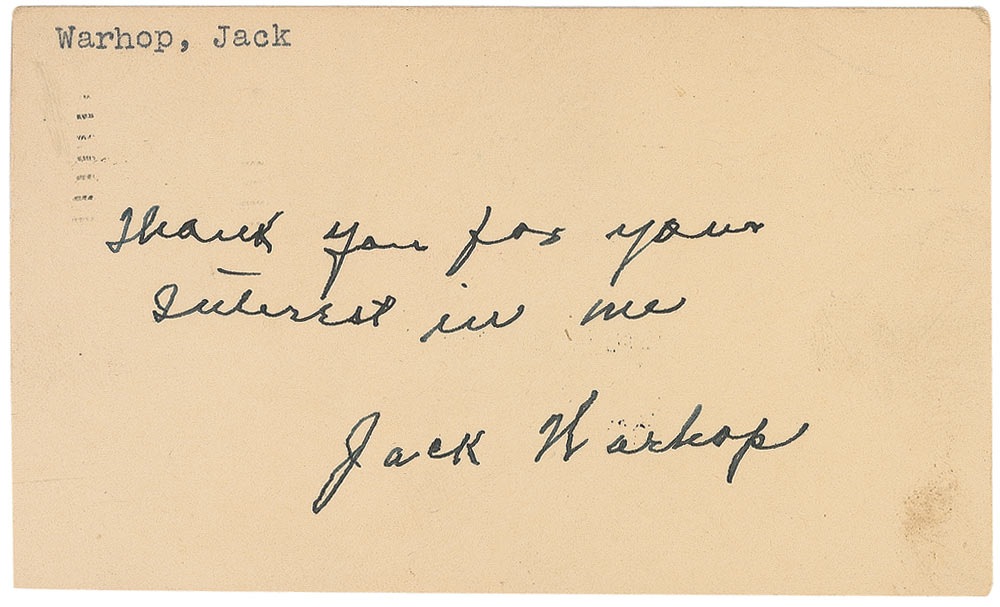 Warhop, Jack
Thank you for your
Interest in me
Jack Warhop